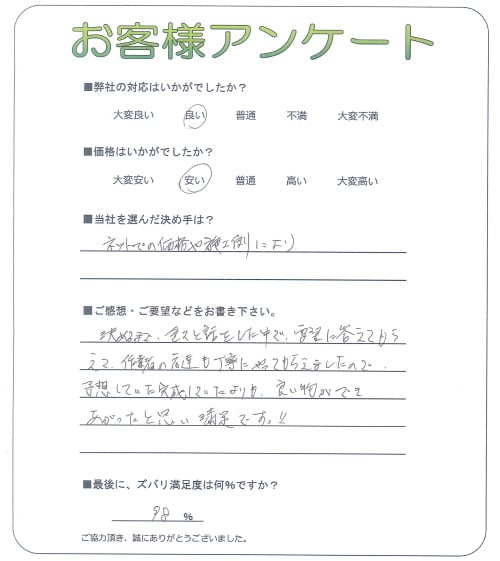 お客様アンケート
■弊社の対応はいかがでしたか?
大変良い 良い 普通 不満 大変不満
■価格はいかがでしたか?
大変安い 安い 普通 高い 大変高い
■当社を選んだ決め手は?
ネットでの価格や施工例により
■ご感想・ご要望などをお書き下さい。
決めるまで、色々と話をした中で、要望に答えてもら
えて、作業の方達も丁寧にやってもらえましたので、
予想していた完成していたよりも、良い物ができ
あがったと思い満足です。!!
■最後に、ズバリ満足度は何%ですか?
98 %
ご協力頂き、誠にありがとうございました。